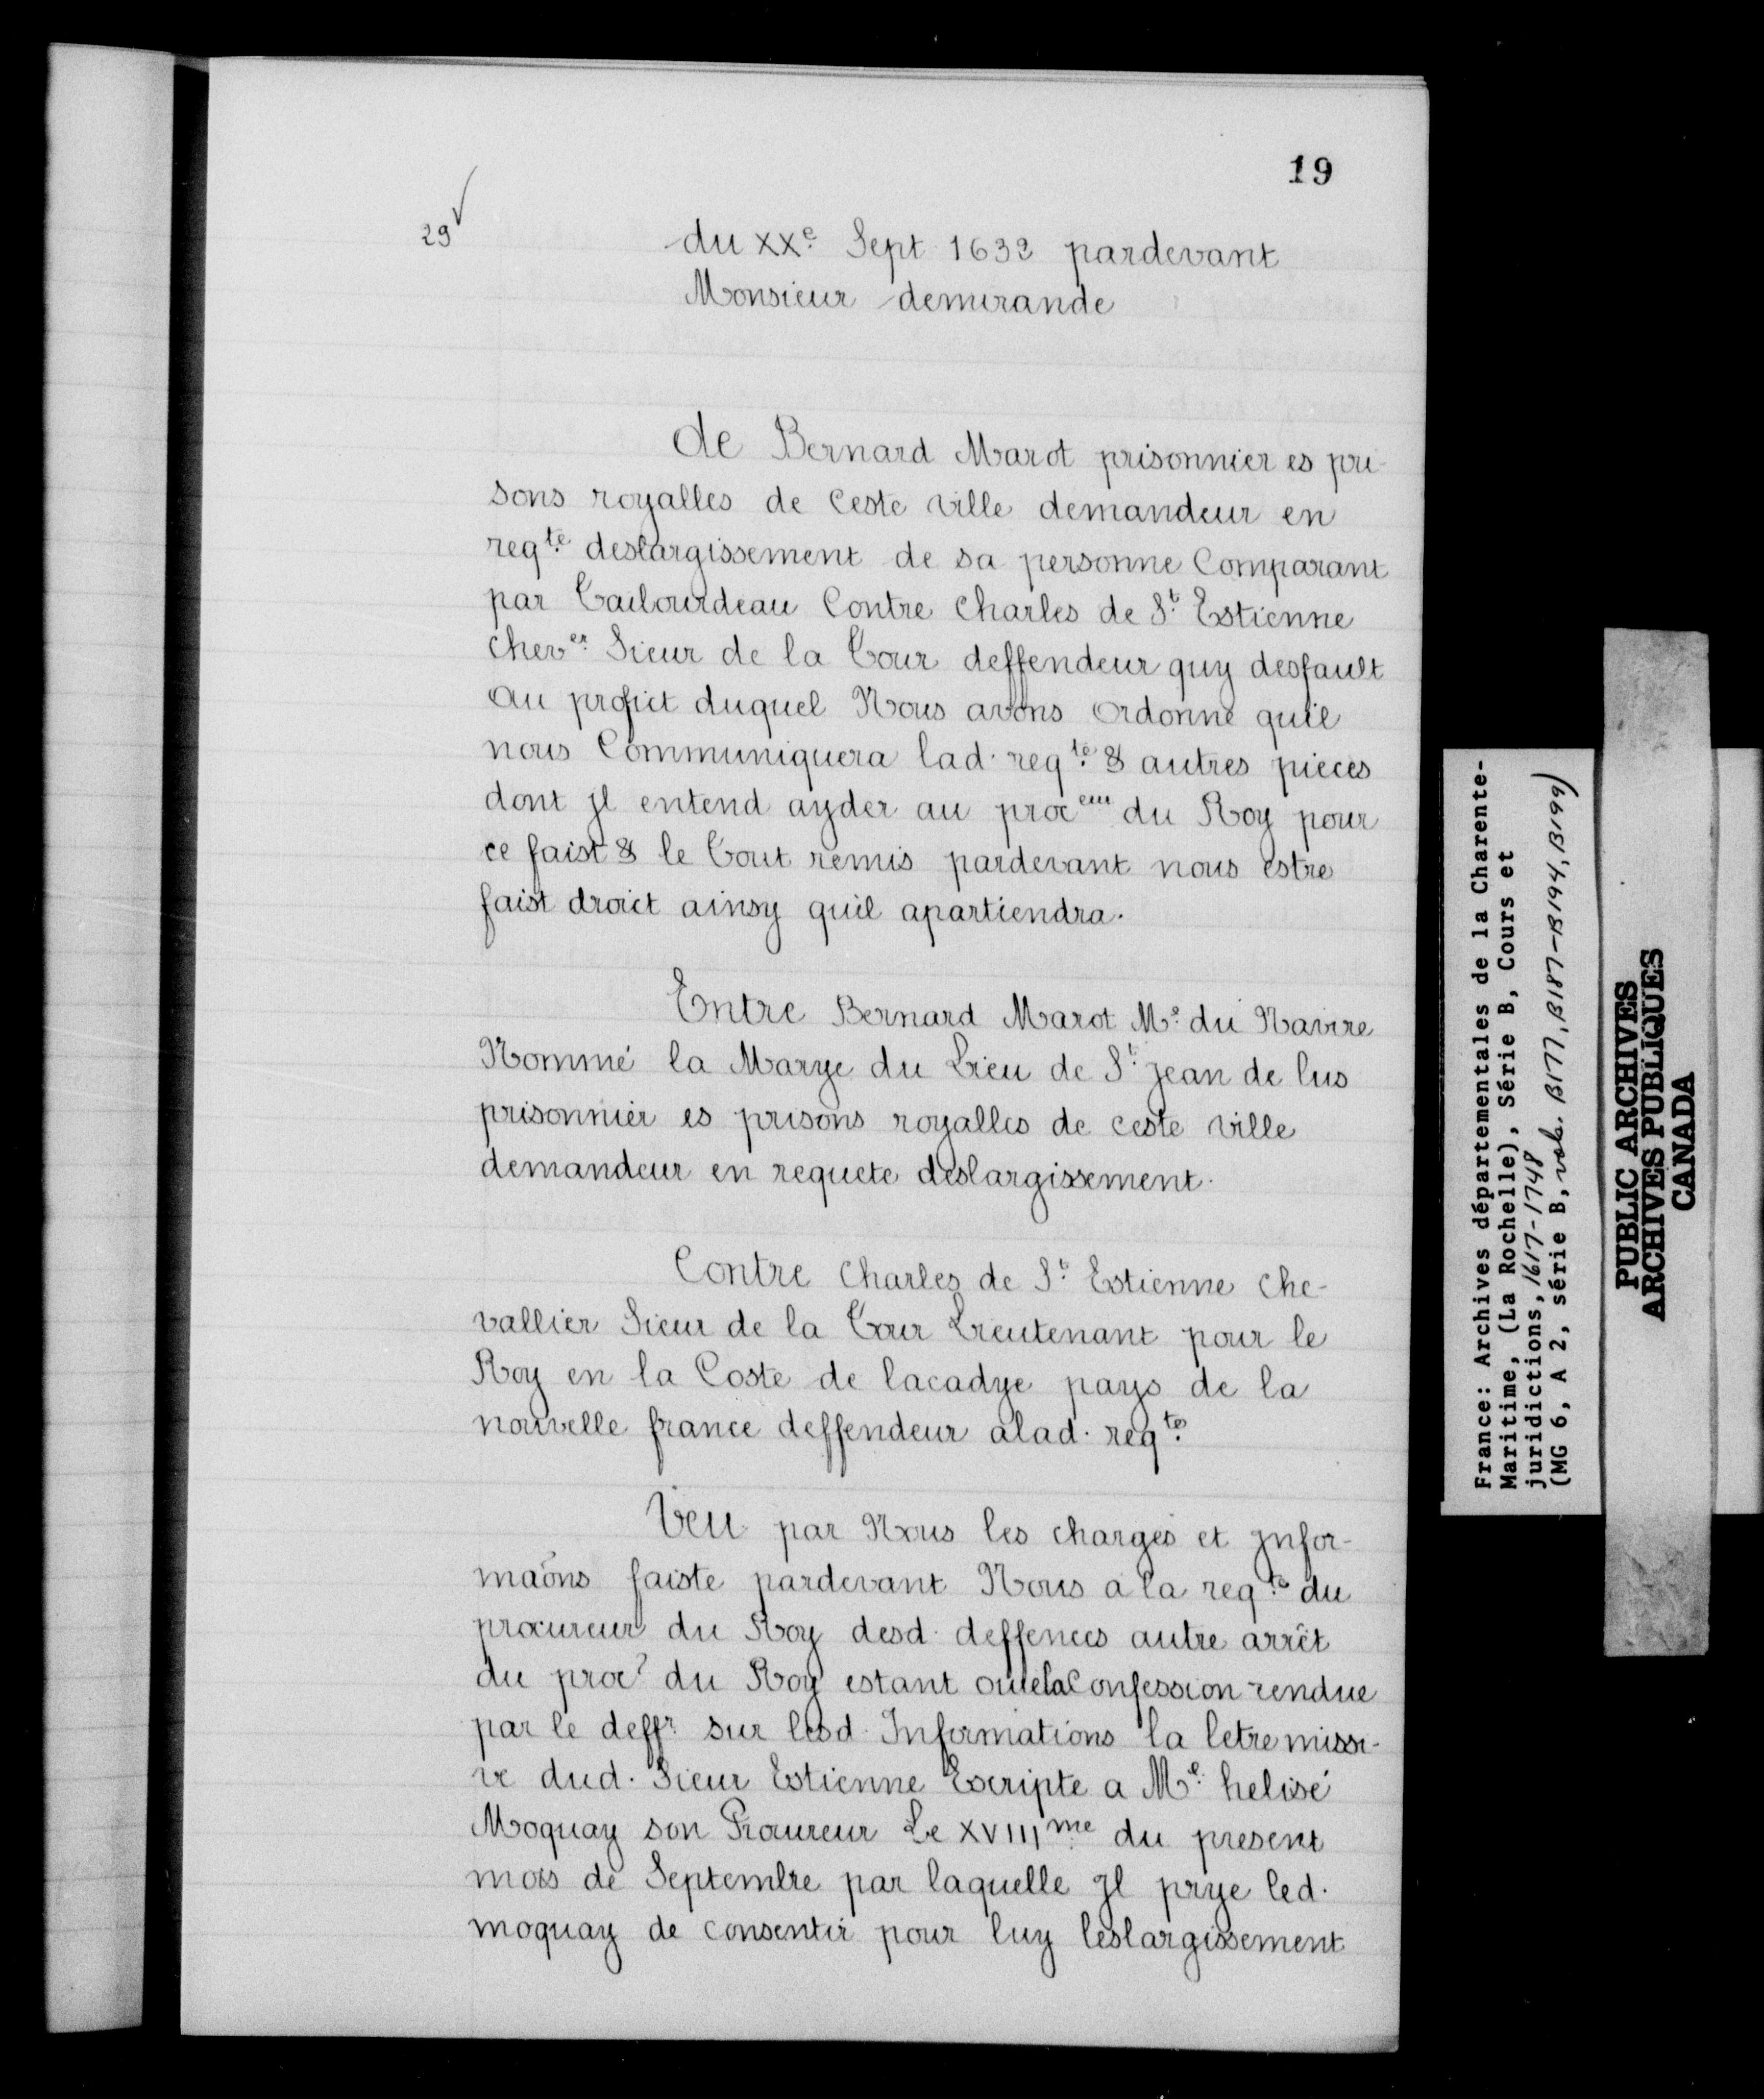 19
29 ✓
du XXe. Sept 1632 pardevant
Monsieur demirande
de Bernard Marot prisonnier es pri-
sons royalles de Ceste ville demandeur en
reqte. deslargissement de sa personne Comparant
par Tailourdeau Contre Charles de St. Estienne
chever. Sieur de la Tour deffendeur quy desfault
au profict duquel Nous avons Ordonné quil
nous Communiquera lad. reqte. & autres pieces
dont jl entend ayder au proceur du Roy pour
ce faist & le Tout remis pardevant nous estre
faist droict ainsy quil apartiendra.
Entre Bernard Marot Me. du Navire
Nommé la Marye du Lieu de St. Jean de lus
prisonnier es prisons royalles de ceste ville
demandeur en requete deslargissement.
Contre Charles de St. Estienne che-
vallier Sieur de la Tour Lieutenant pour le
Roy en la Coste de lacadye pays de la
nouvelle france deffendeur alad. reqte.
Veu par Nous les charges et jnfor-
maōns faiste pardevant Nous a la reqte. du
procureur du Roy desd. deffences autre arrêt
du procr. du Roy estant ouie la Confession rendue
par le deffr. sur lesd. Informations la letre missi-
ve dud. Sieur Estienne Escripte a Me. helisé
Moquay son Procureur Le XVIIIme. du present
mois de Septembre par laquelle jl prye led.
moquay de consentir pour luy leslargissement
France: Archives départementales de la Charente-
Maritime, (La Rochelle), Série B, Cours et
juridictions, 1617-1748
(MG 6, A 2, série B, vols. B177, B187-B194, B199)
PUBLIC ARCHIVES
ARCHIVES PUBLIQUES
CANADA